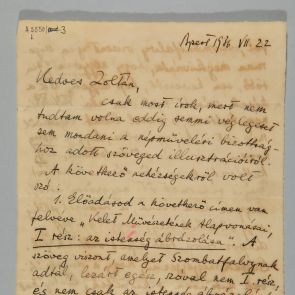 Bpest 1936. VII. 22
Kedves Zoltán,
csak most írok, mert nem
tudtam volna eddig semmi véglegeset
sem mondani a népművelési bizottság-
hoz adott szöveged illusztrációiról.
A következő nehézségekről volt
szó:
1. Előadásod a következő címen van
felvéve "Kelet Művészetének Alapvonásai,
I rész: az istenség ábrázolása". A
szöveg viszont, amelyet Szombatfalvynak
adtál, egész, szóval nem I. rész,
és nem csak az istenség